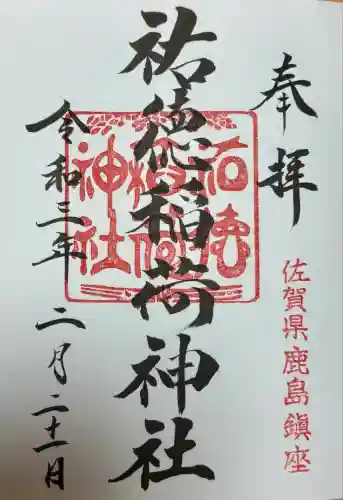 奉拝
佐賀県鹿島鎮座
祐徳稲荷神社
祐徳稲荷神社
令和三年二月二十一日